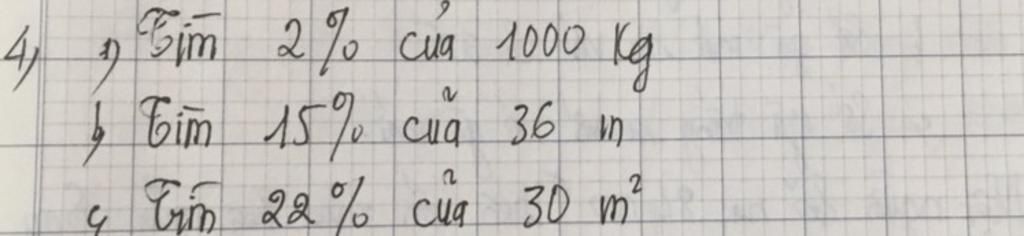 4) a) Tìm 2% của 1000 Kg
b) Tìm 15% của 36 m
c) Tìm 22% của 30 m²